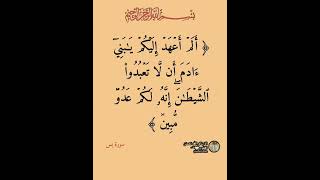 بسم الله الرحمن الرحيم
﴿ أَلَمۡ أَعۡهَدۡ إِلَيۡكُمۡ يَٰبَنِيٓ
ءَادَمَ أَن لَّا تَعۡبُدُواْ
ٱلشَّيۡطَٰنَۖ إِنَّهُۥ لَكُمۡ عَدُوّٞ
مُّبِينٞ ﴾
سورة يس